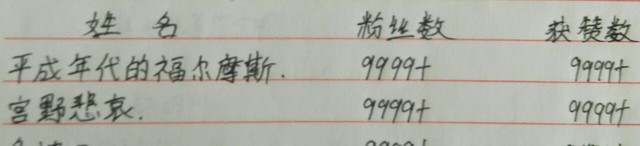 姓 名 粉丝数 获赞数
平成年代的福尔摩斯. 9999+ 9999+
宫野悲哀. 9999+ 9999+